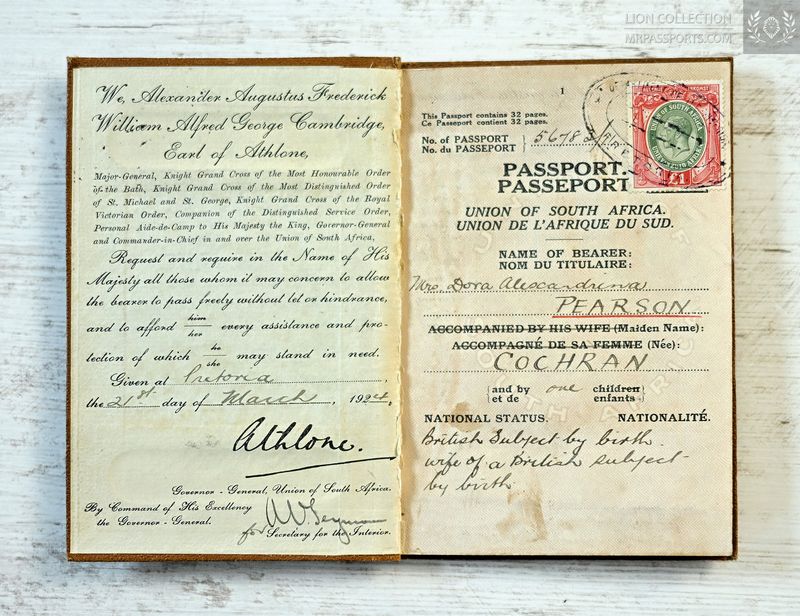 LION COLLECTION
MRPASSPORTS.COM
We, Alexander Augustus Frederick
William Alfred George Cambridge,
Earl of Athlone,
Major-General, Knight Grand Cross of the Most Honourable Order
of the Bath, Knight Grand Cross of the Most Distinguished Order
of St. Michael and St. George, Knight Grand Cross of the Royal
Victorian Order, Companion of the Distinguished Service Order,
Personal Aide-de-Camp to His Majesty the King, Governor-General
and Commander-in-Chief in and over the Union of South Africa,
Request and require in the Name of His
Majesty all those whom it may concern to allow
the bearer to pass freely without let or hindrance,
and to afford him/her every assistance and pro-
tection of which he/she may stand in need.
Given at Pretoria,
the 21st day of March, 1924.
Athlone.
Governor-General, Union of South Africa.
By Command of His Excellency
the Governor-General.
for Secretary for the Interior.
1
This Passport contains 32 pages.
Ce Passeport contient 32 pages.
No. of PASSPORT
No. du PASSEPORT
56783
UNION OF SOUTH AFRICA
£1
PASSPORT.
PASSEPORT
UNION OF SOUTH AFRICA.
UNION DE L'AFRIQUE DU SUD.
NAME OF BEARER:
NOM DU TITULAIRE:
Mrs. Dora Alexandrina
PEARSON
ACCOMPANIED BY HIS WIFE (Maiden Name):
ACCOMPAGNÉ DE SA FEMME (Née):
COCHRAN
and by one children
et de enfants
NATIONAL STATUS. NATIONALITÉ.
British Subject by birth.
wife of a British subject
by birth